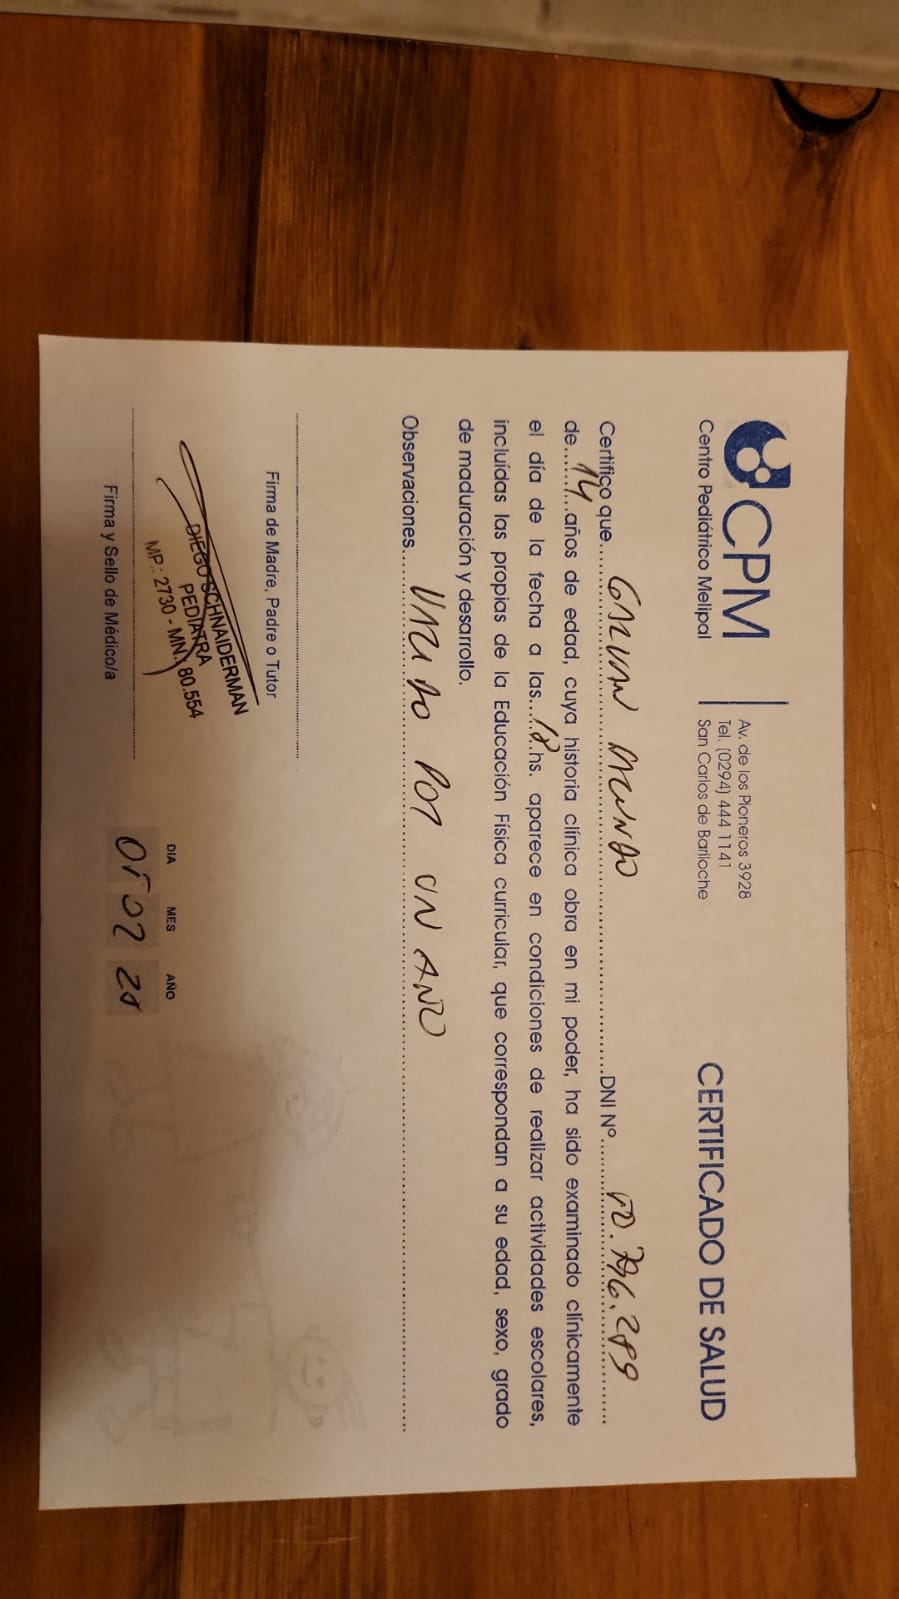 CPM
Centro Pediátrico Melipal
Av. de los Pioneros 3928
Tel. (0294) 444 1141
San Carlos de Bariloche
CERTIFICADO DE SALUD
Certifico que GALVAN DNI Nº
de 14 años de edad, cuya historia clínica obra en mi poder, ha sido examinado clínicamente
el día de la fecha a las 18 hs. aparece en condiciones de realizar actividades escolares,
incluídas las propias de la Educación Física curricular, que correspondan a su edad, sexo, grado
de maduración y desarrollo.
Observaciones VALIDO POR UN AÑO
Firma de Madre, Padre o Tutor
DIEGO SCHNAIDERMAN
PEDIATRA
MP.: 2730 - MN. 80.554
Firma y Sello de Médico/a
DIA MES AÑO
02